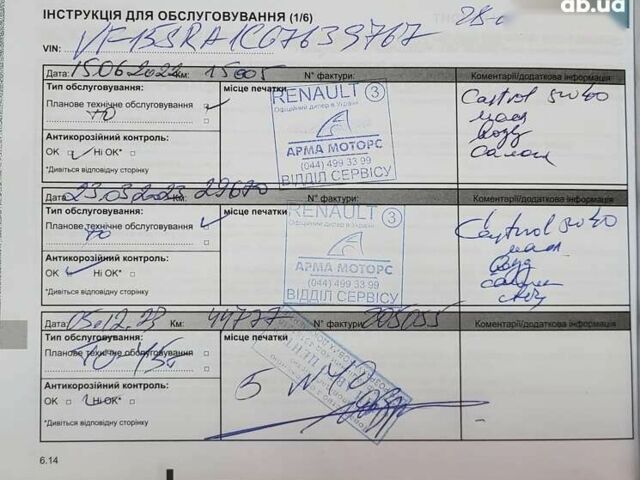 db.ua
ІНСТРУКЦІЯ ДЛЯ ОБСЛУГОВУВАННЯ (1/6)
VIN: VF15SRA1C67639767
Дата: 15.06.2022 Км: 15005 N° фактури: Коментарі/додаткова інформація
Тип обслуговування: місце печатки
Планове технічне обслуговування
ТО
Антикорозійний контроль:
ОК Ні ОК*
*Дивіться відповідну сторінку
RENAULT 3
Офіційний дилер в Україні
АРМА МОТОРС
(044) 499 33 99
ВІДДІЛ СЕРВІСУ
Castrol 5W40
масл
возд
салон
Дата: 23.03.2023 Км: 29670 N° фактури: Коментарі/додаткова інформація
Тип обслуговування: місце печатки
Планове технічне обслуговування
ТО
Антикорозійний контроль:
ОК Ні ОК*
*Дивіться відповідну сторінку
RENAULT 3
Офіційний дилер в Україні
АРМА МОТОРС
(044) 499 33 99
ВІДДІЛ СЕРВІСУ
Castrol 5W40
масл
возд
салон
Дата: 05.12.23 Км: 44777 N° фактури: Коментарі/додаткова інформація
Тип обслуговування: місце печатки
Планове технічне обслуговування
ТО-45
Антикорозійний контроль:
ОК Ні ОК*
*Дивіться відповідну сторінку
6.14